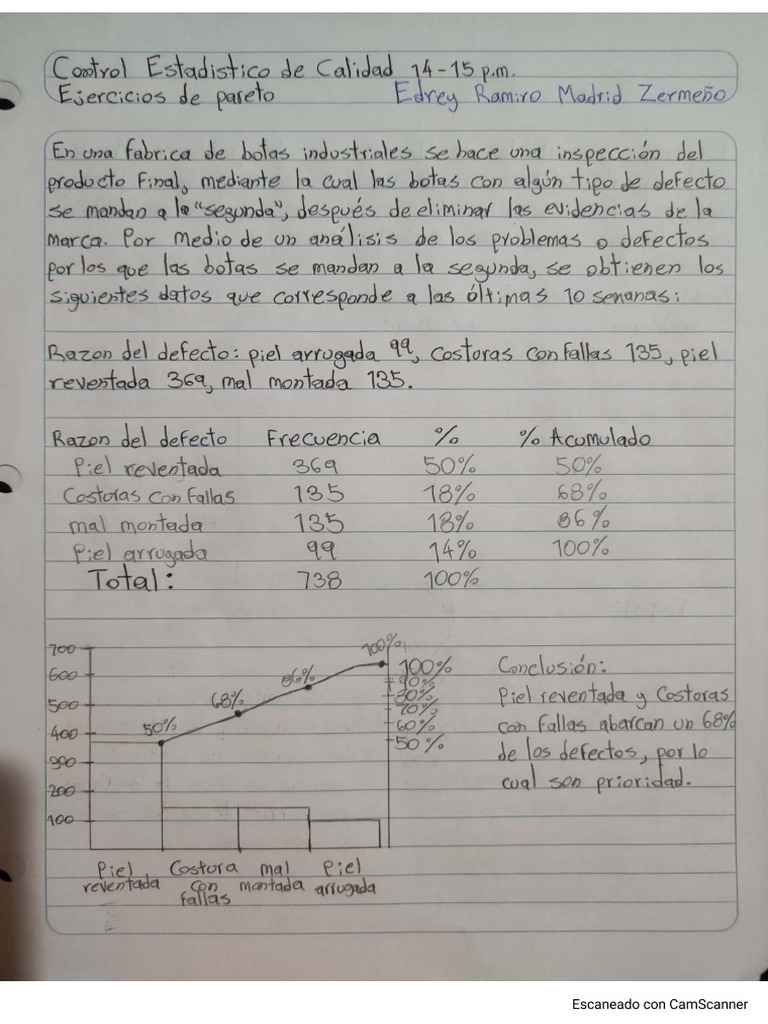 Control Estadistico de Calidad 14-15 p.m.
Ejercicios de pareto Edrey Ramiro Madrid Zermeño
En una fabrica de botas industriales se hace una inspección del
producto final, mediante la cual las botas con algún tipo de defecto
se mandan a la "segunda", después de eliminar las evidencias de la
marca. Por medio de un análisis de los problemas o defectos
por los que las botas se mandan a la segunda, se obtienen los
siguientes datos que corresponde a las últimas 10 semanas:
Razon del defecto: piel arrugada 99, costoras con fallas 135, piel
reventada 369, mal montada 135.
Razon del defecto Frecuencia % % Acumulado
Piel reventada 369 50% 50%
Costoras con fallas 135 18% 68%
mal montada 135 18% 86%
Piel arrugada 99 14% 100%
Total: 738 100%
700
600
500
400
300
200
100
50%
68%
86%
100%
100%
90%
80%
70%
60%
50%
Piel reventada
Costora con fallas
mal montada
Piel arrugada
Conclusión:
Piel reventada y Costoras
con fallas abarcan un 68%
de los defectos, por lo
cual son prioridad.
Escaneado con CamScanner